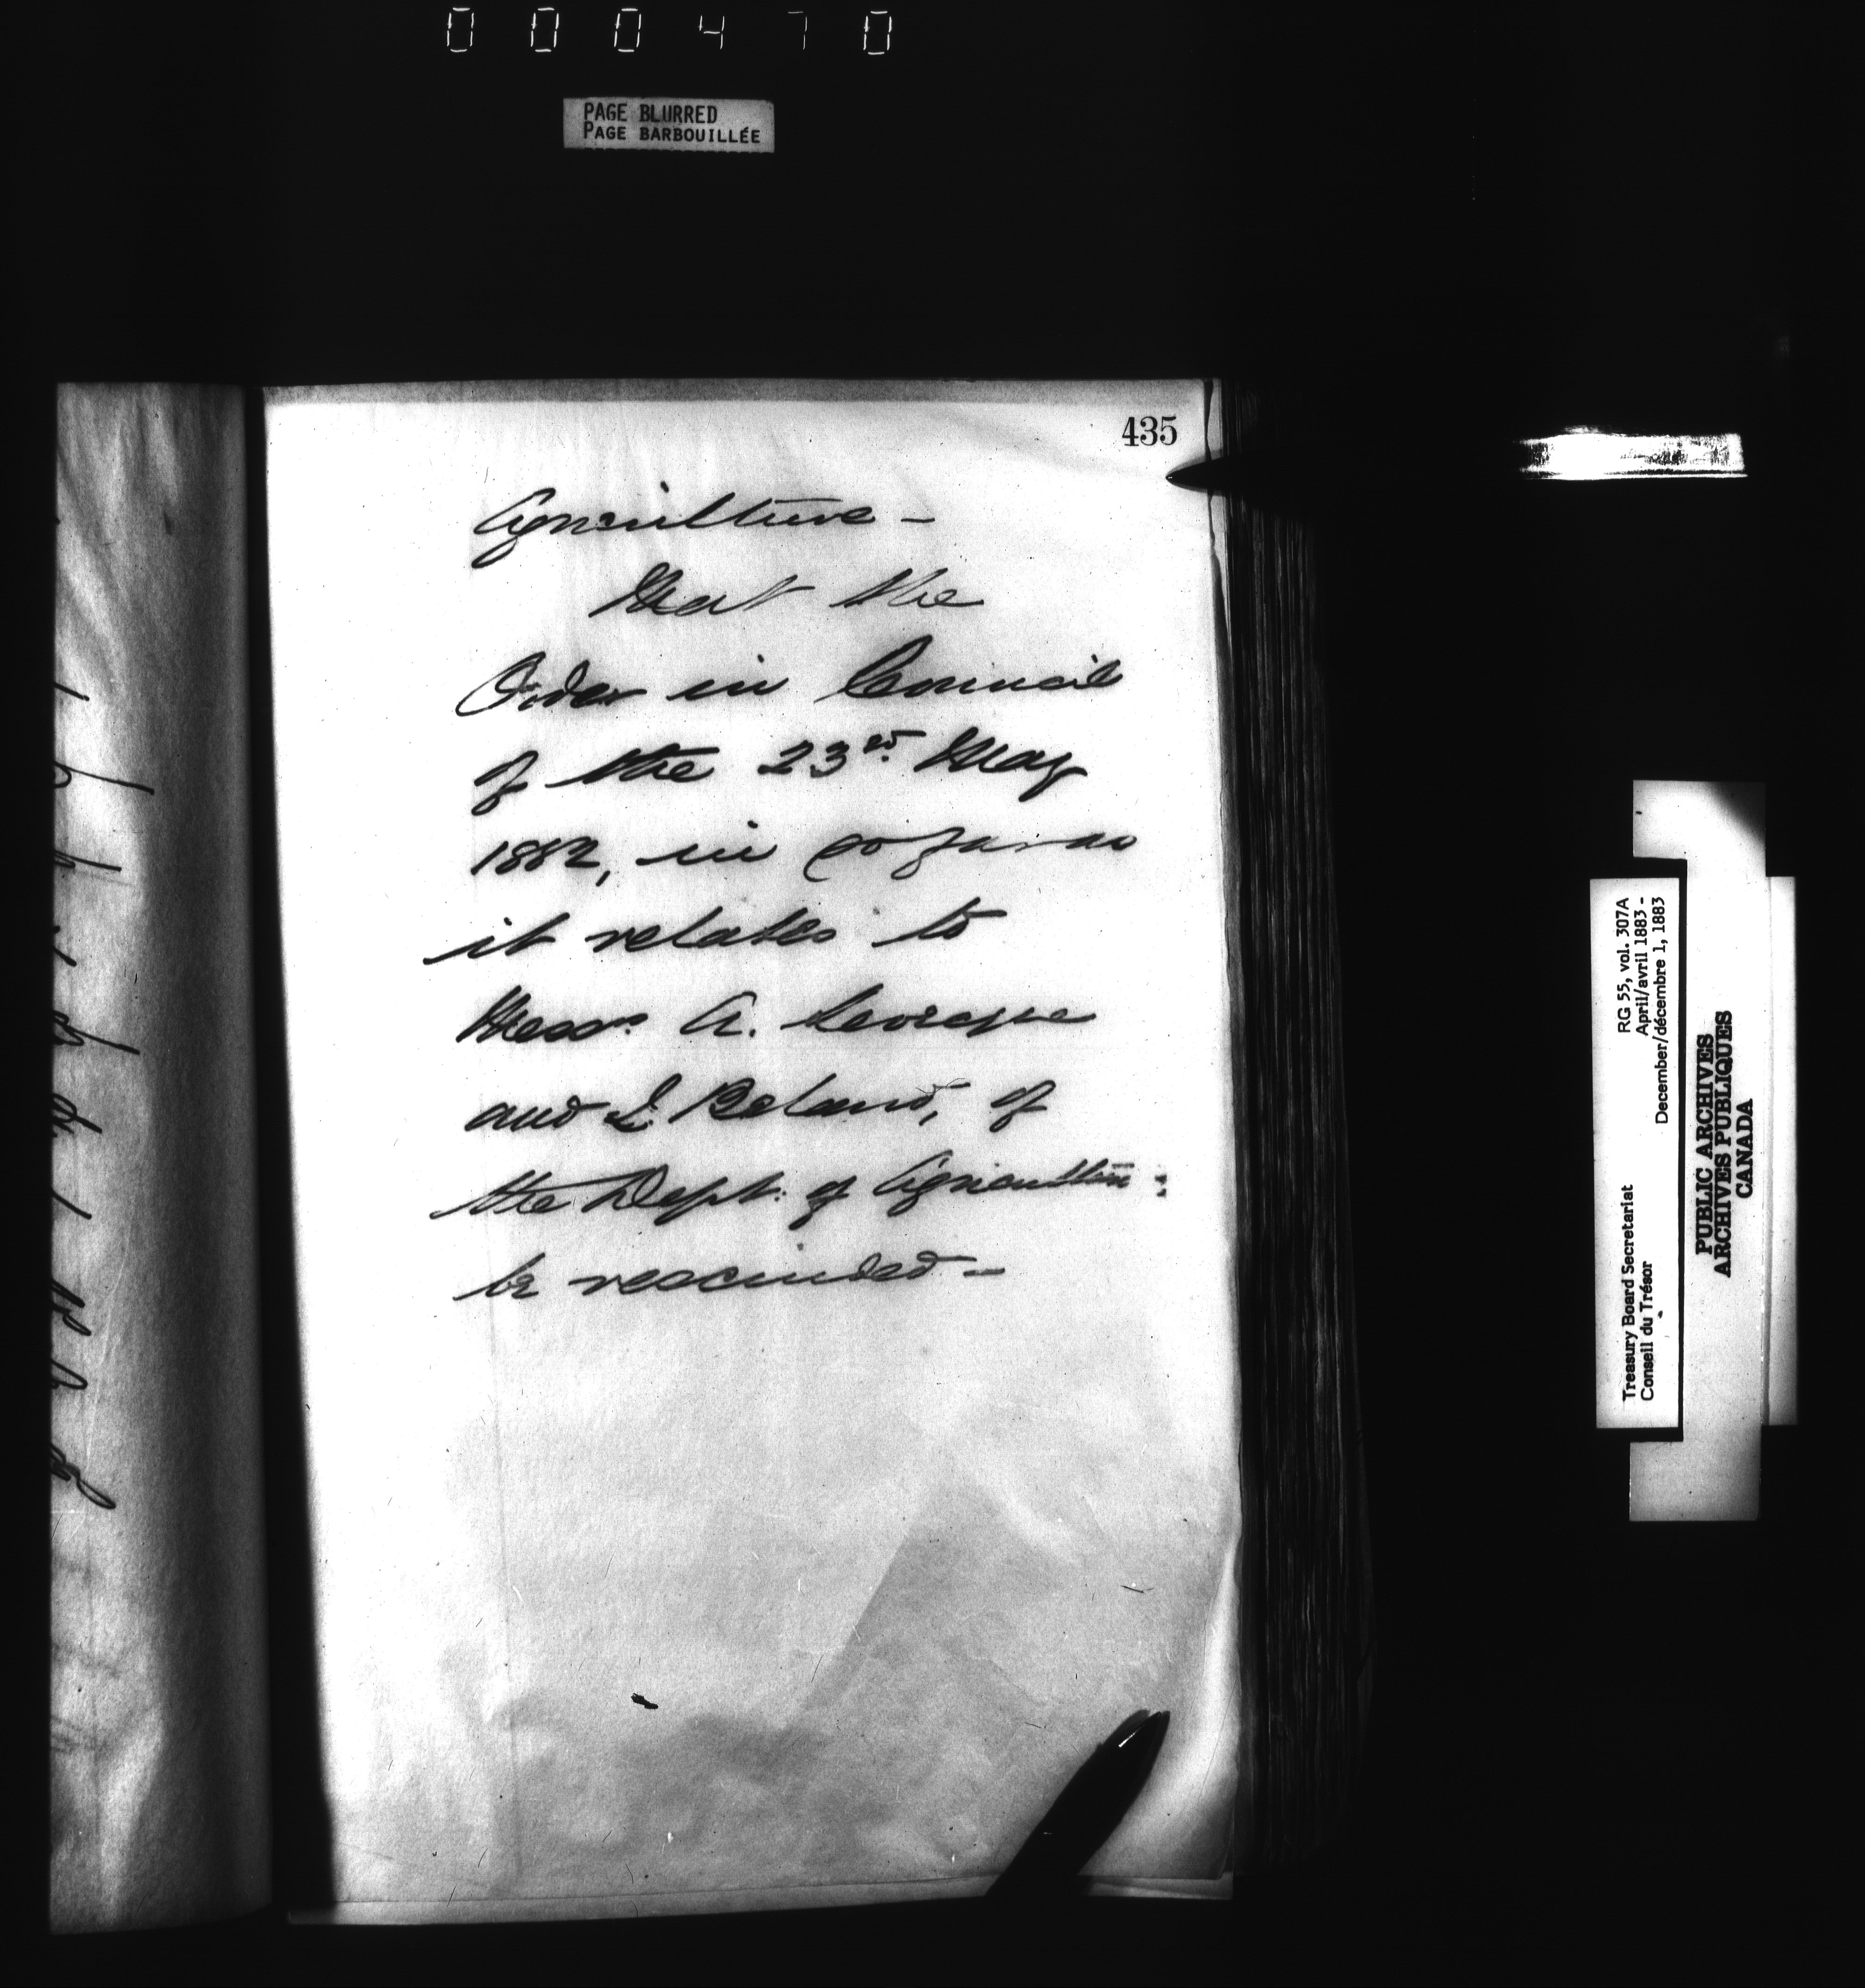 000470
PAGE BLURRED
PAGE BARBOUILLÉE
435
Agriculture -
That the
Order in Council
of the 23rd. May
1882, in so far as
it relates to
Messrs. A.
and L. Beland, of
the Dept. of Agriculture
be rescinded -
Treasury Board Secretariat RG 55, vol. 307A
Conseil du Trésor April/avril 1883 -
December/décembre 1, 1883
PUBLIC ARCHIVES
ARCHIVES PUBLIQUES
CANADA